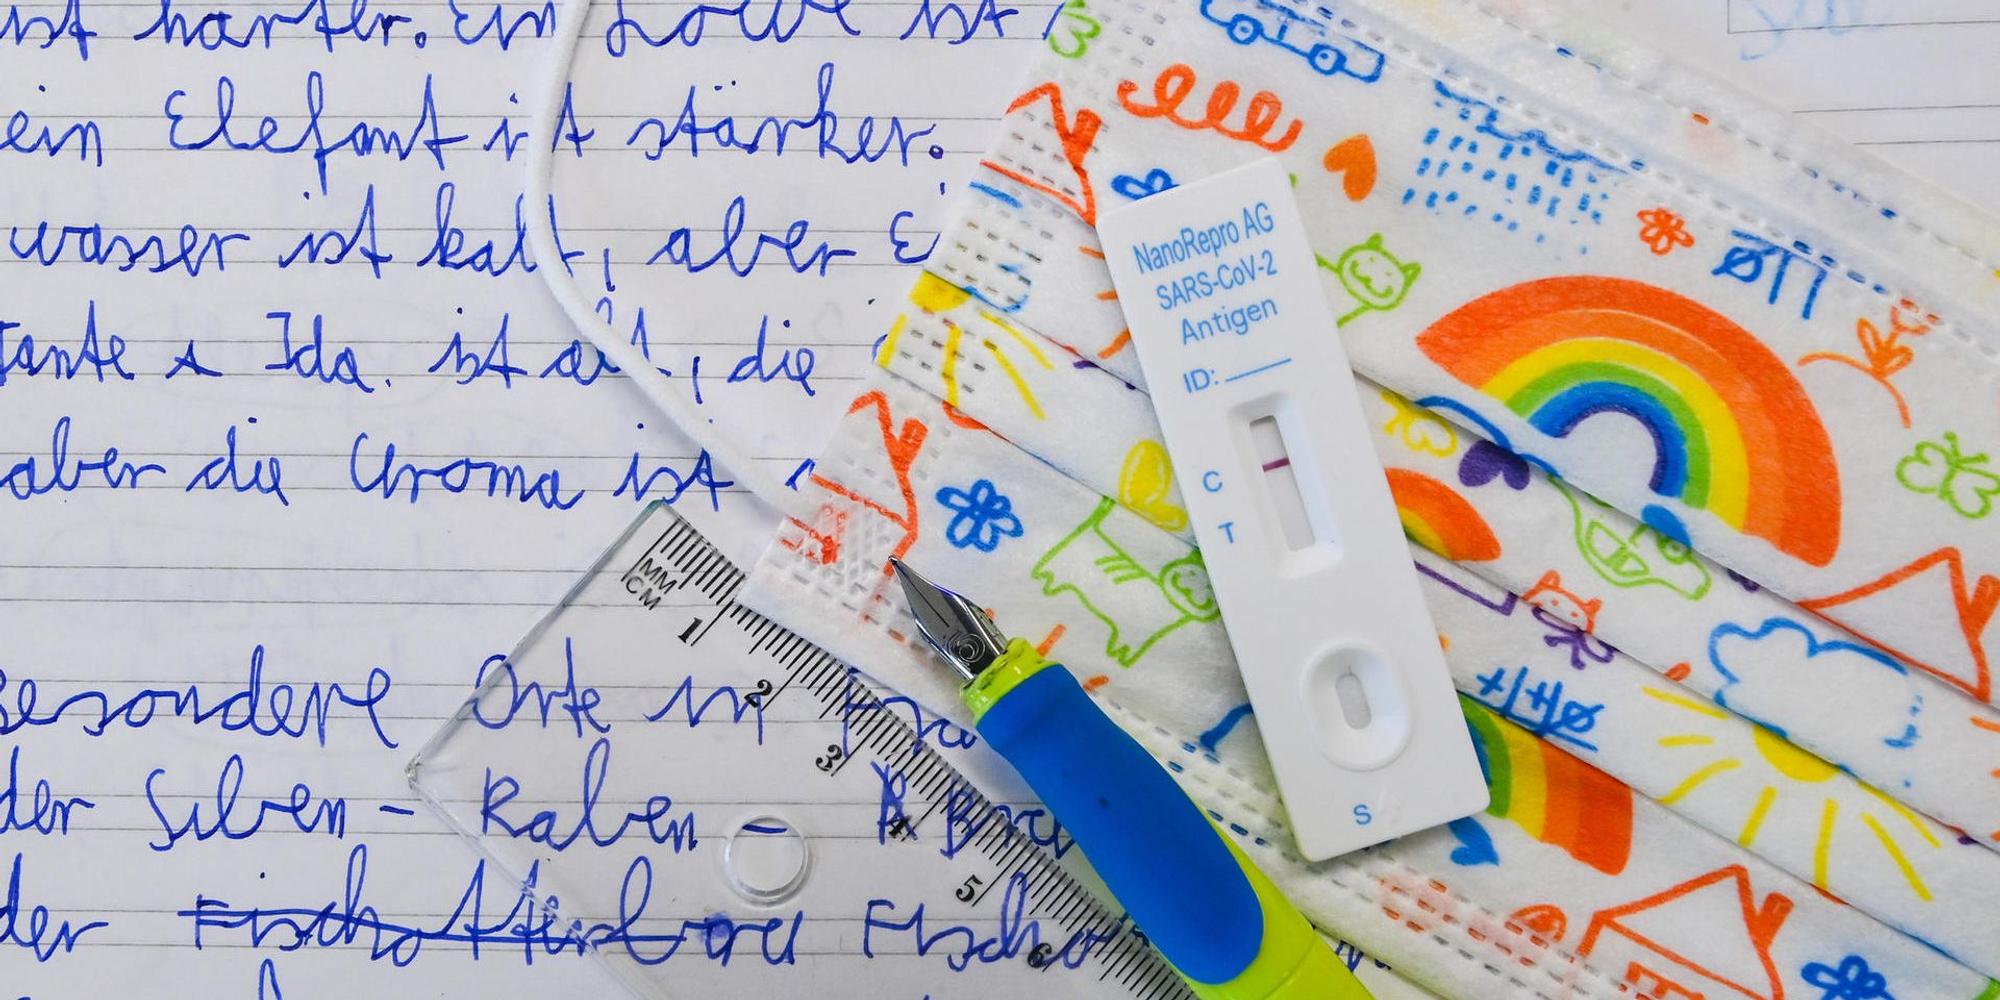 ist härter. Ein Löwe ist
ein Elefant ist stärker.
wasser ist kalt, aber Ei
Tante Ida. ist alt, die
aber die Uroma ist
besondere Orte in
der Silben - Raben -
der Fischotterbau Fischo
NanoRepro AG
SARS-CoV-2
Antigen
ID:
C
T
S
MM
CM
1
2
3
4
5
6